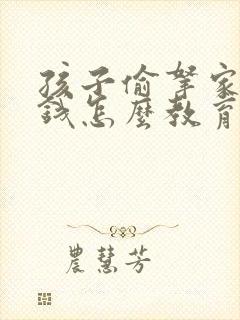 孩子偷拏家
錢怎麼教育
農慧芳